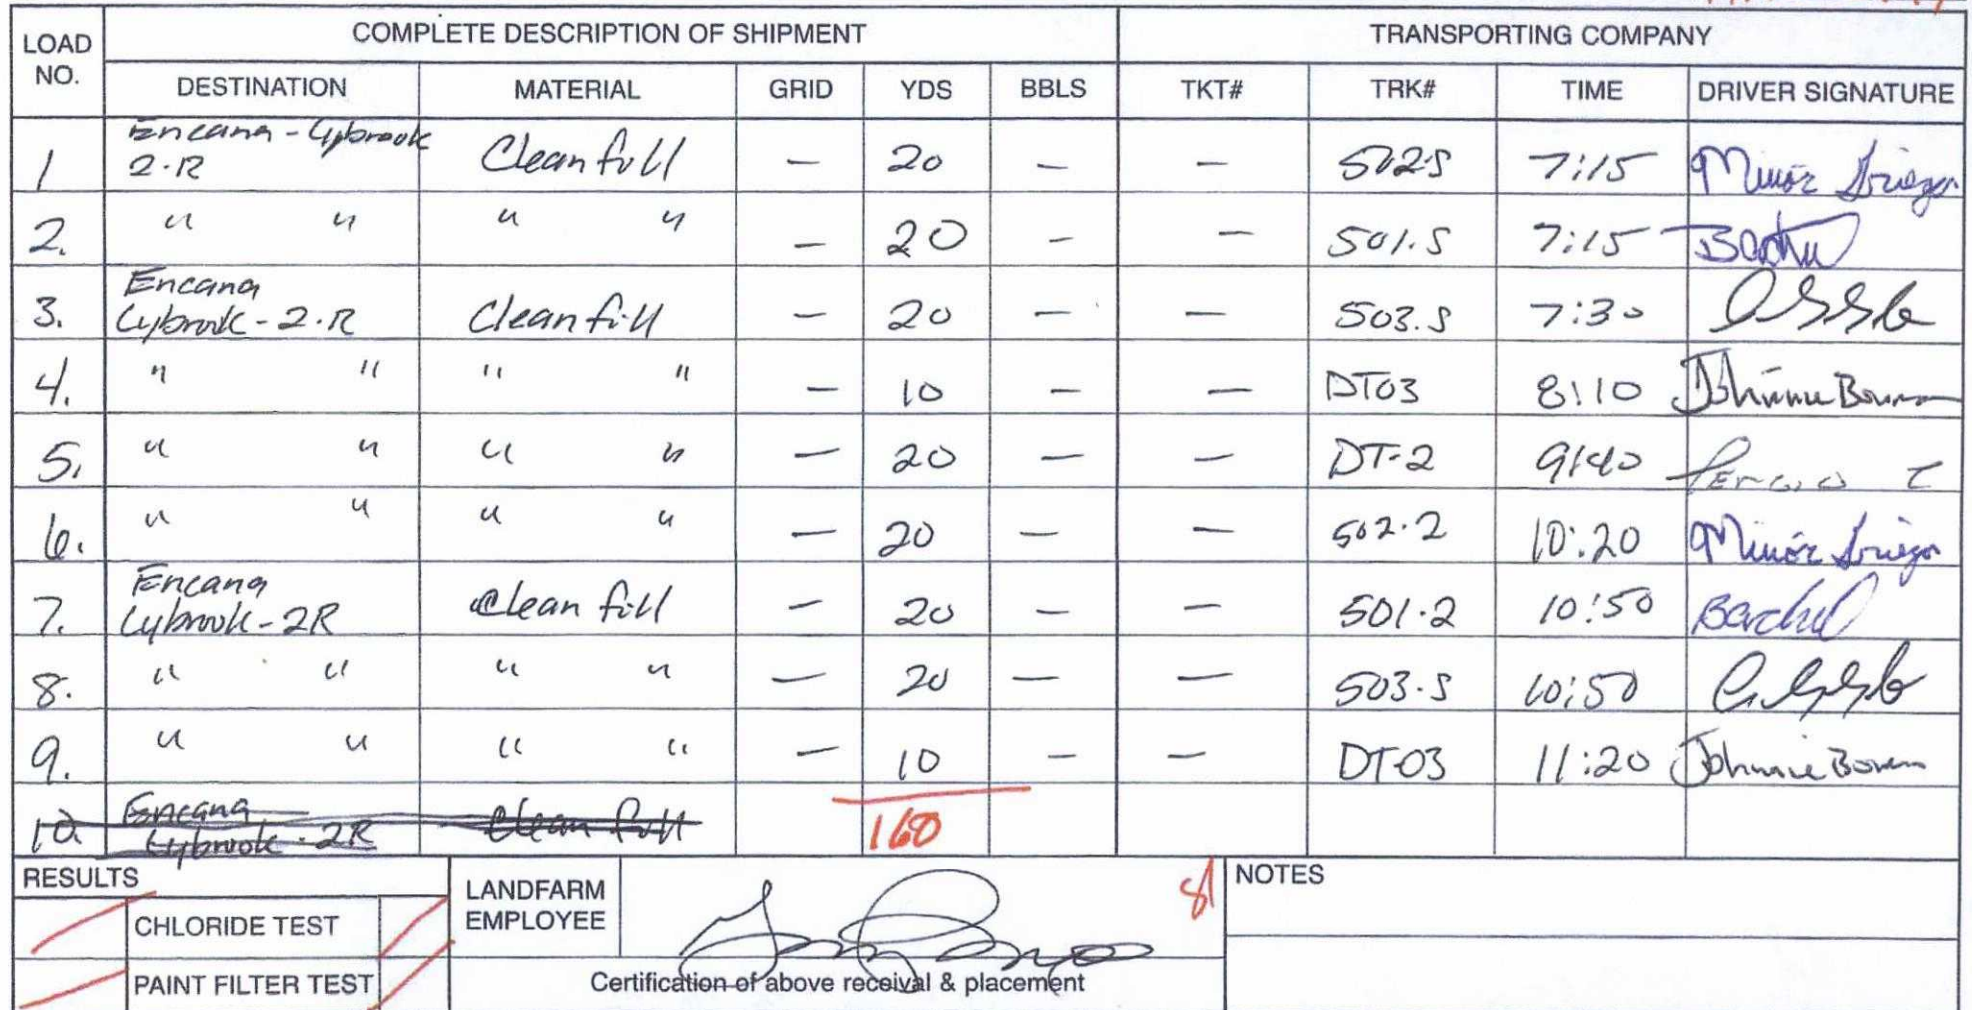 COMPLETE DESCRIPTION OF SHIPMENT TRANSPORTING COMPANY
LOAD NO. DESTINATION MATERIAL GRID YDS BBLS TKT# TRK# TIME DRIVER SIGNATURE
1 Encana - Lybrook 2-R Clean fill — 20 — — 502-S 7:15 Minor
2. " " " " — 20 — — 501-S 7:15
3. Encana Lybrook - 2-R Clean fill — 20 — — 503-S 7:30
4. " " " " — 10 — — DT03 8:10 Johnnie Bowen
5. " " " " — 20 — — DT-2 9:40 Sergio
6. " " " " — 20 — — 502-2 10:20 Minor
7. Encana Lybrook - 2R Clean fill — 20 — — 501-2 10:50
8. " " " " — 20 — — 503-S 10:50
9. " " " " — 10 — — DT-03 11:20 Johnnie Bowen
10. Encana Lybrook - 2R Clean fill 160
RESULTS
CHLORIDE TEST
PAINT FILTER TEST
LANDFARM
EMPLOYEE
Certification of above receival & placement
NOTES